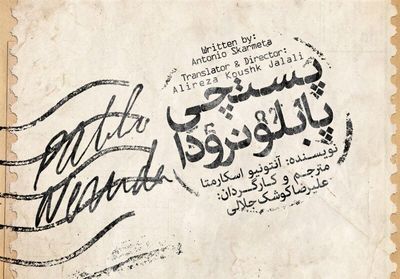 Written by:
Antonio Skarmeta
Translator & Director:
Alireza Koushk Jalali
پستچی
پابلو نرودا
Pablo
Neruda
نویسنده: آنتونیو اسکارمتا
مترجم و کارگردان:
علیرضا کوشک جلالی